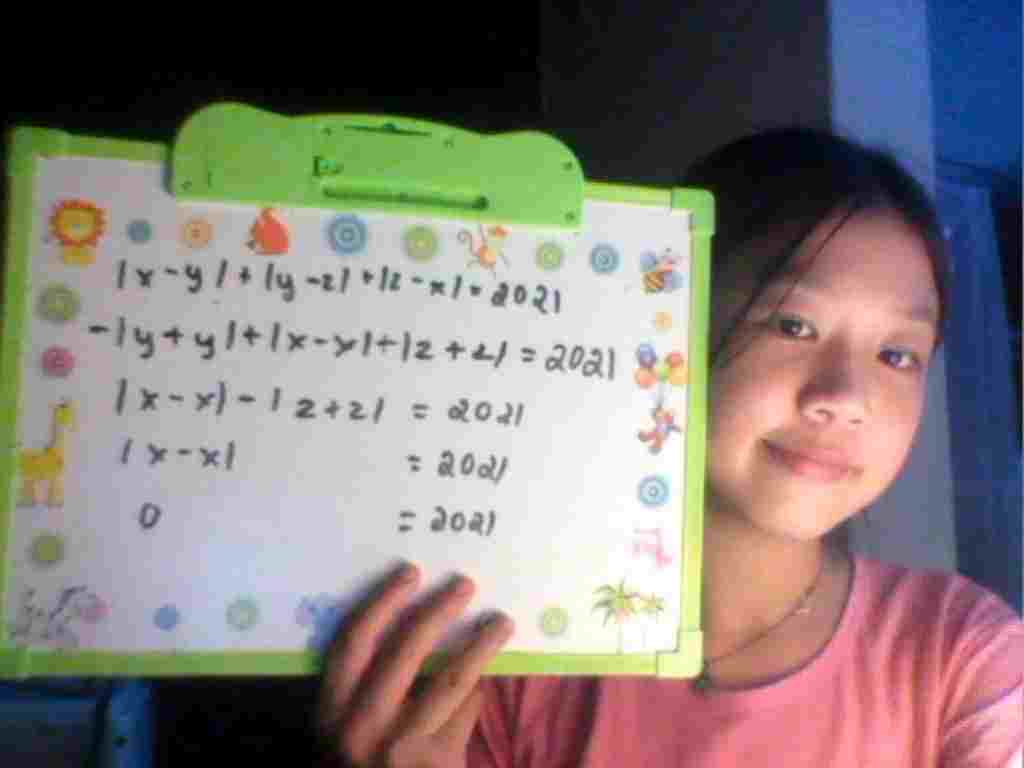 |x-y|+|y-z|+|z-x|=2021
-|y+y|+|x-x|+|z+z|=2021
|x-x|-|z+z| =2021
|x-x| =2021
0 =2021